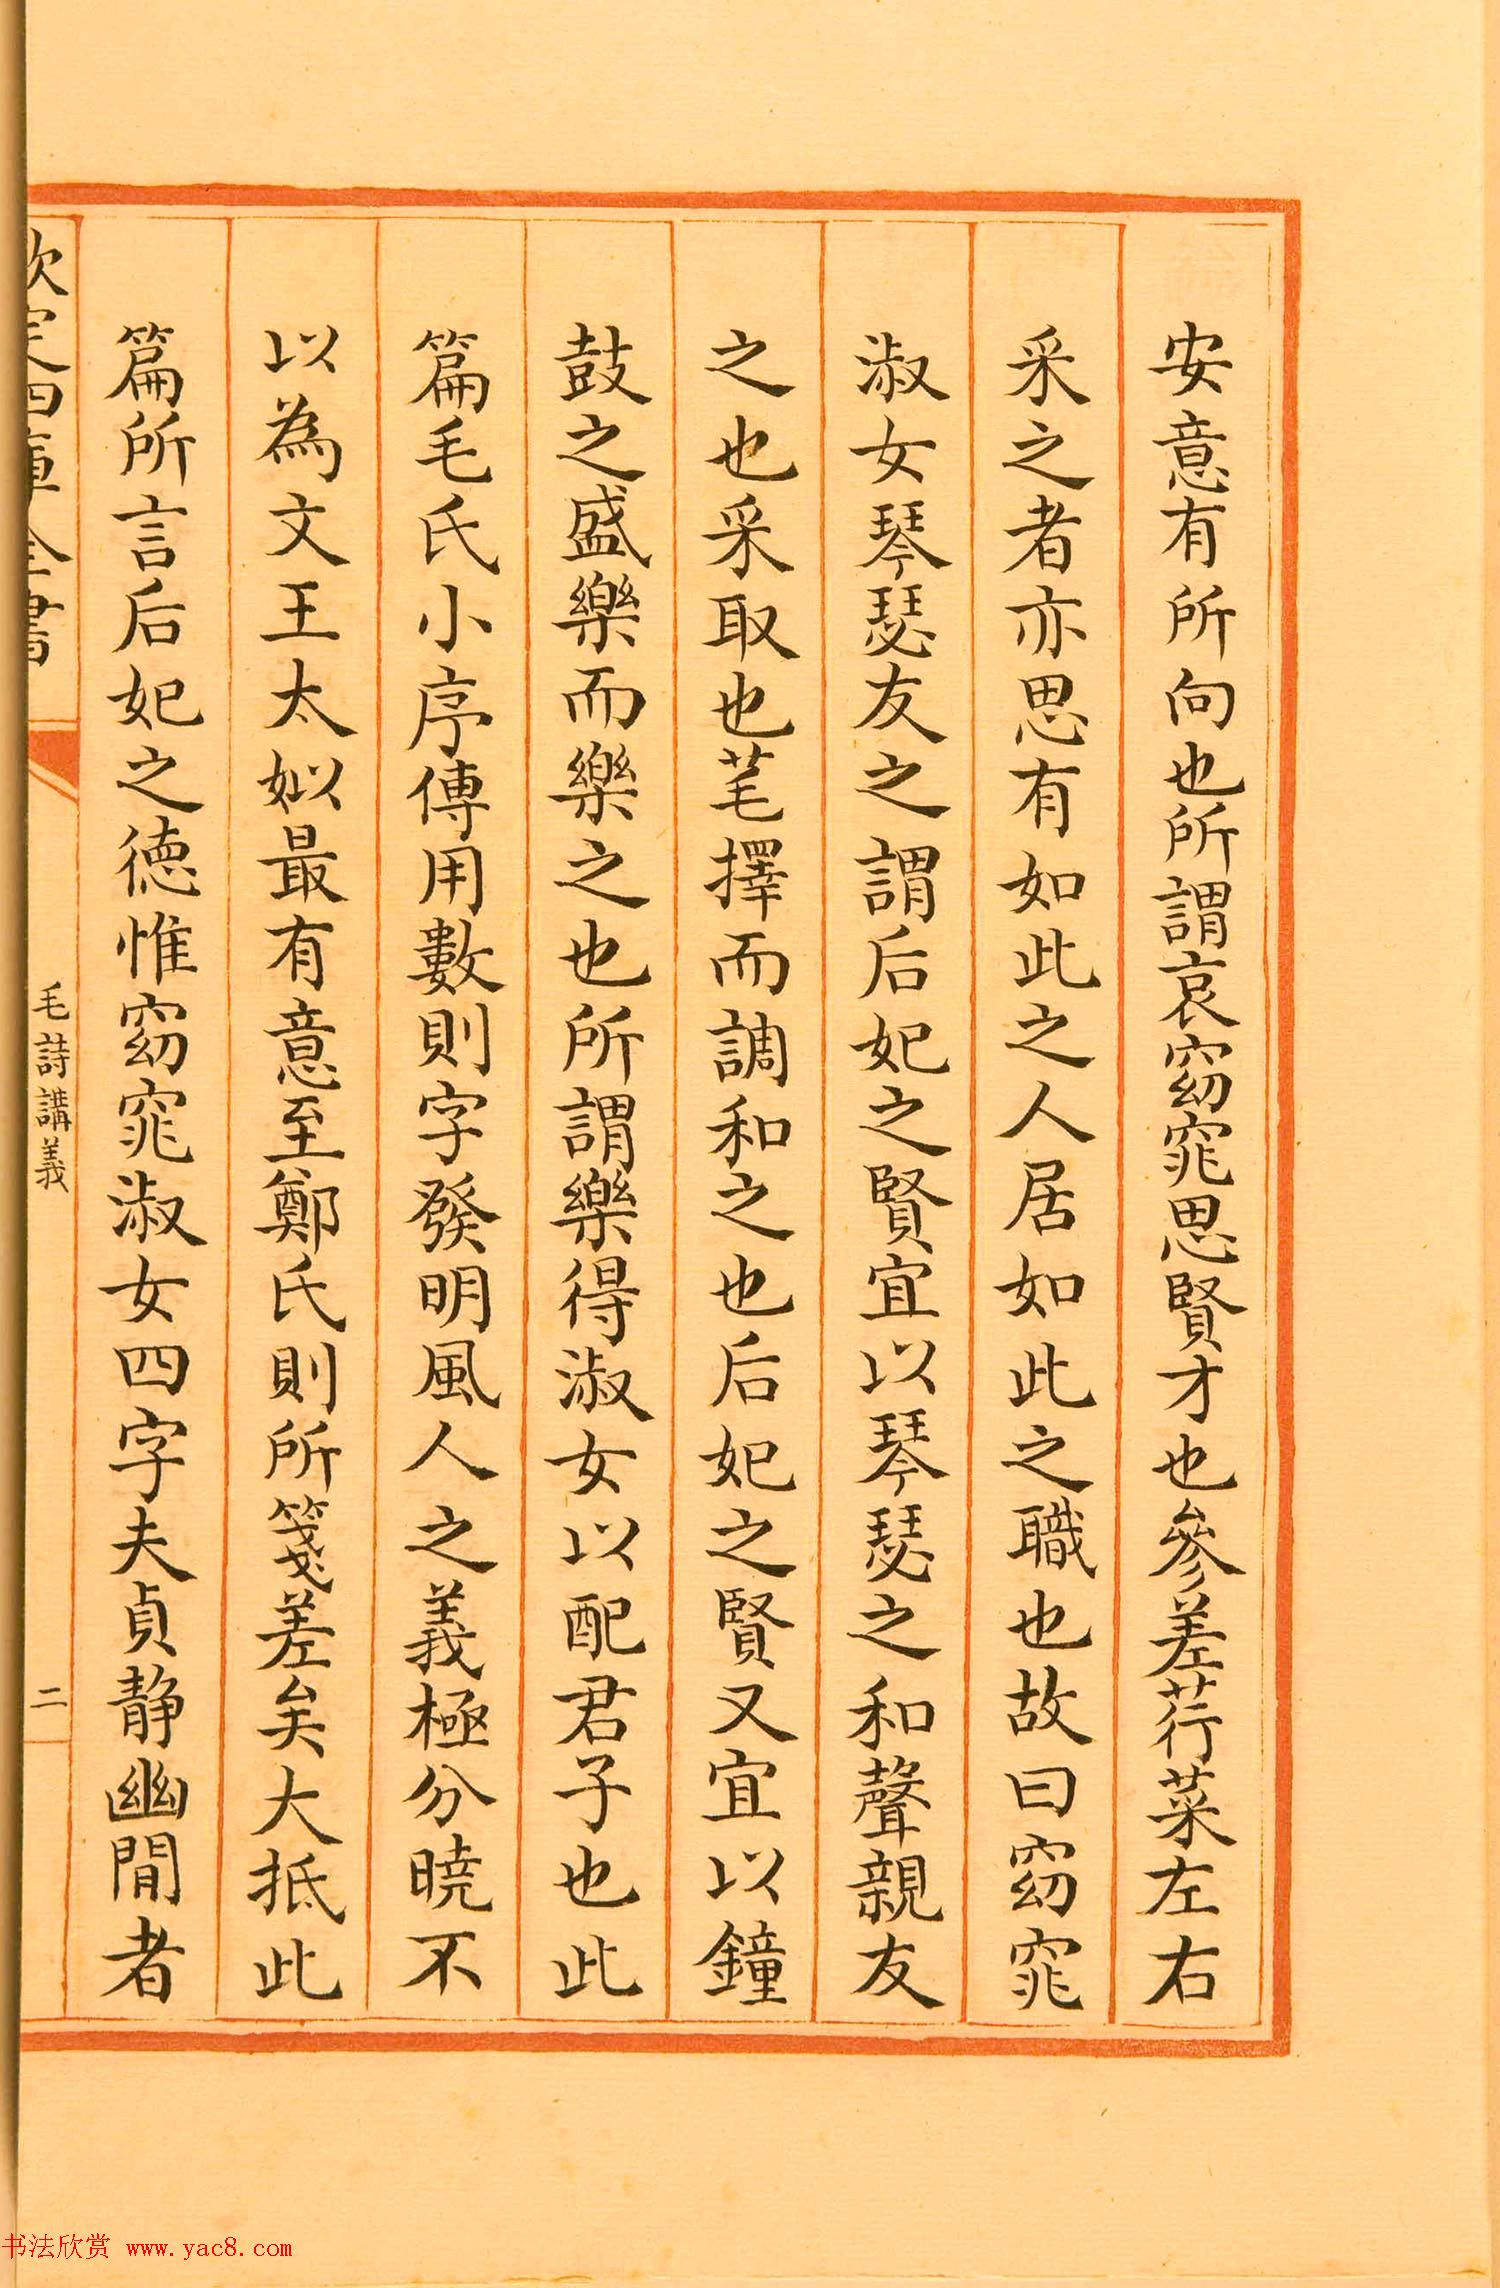 安意有所向也所謂哀窈窕思賢才也參差荇菜左右
采之者亦思有如此之人居如此之職也故曰窈窕
淑女琴瑟友之謂后妃之賢宜以琴瑟之和聲親友
之也采取也芼擇而調和之也后妃之賢又宜以鐘
鼓之盛樂而樂之也所謂樂得淑女以配君子也此
篇毛氏小序傳用數則字發明風人之義極分曉不
以為文王太姒最有意至鄭氏則所箋差矣大抵此
篇所言后妃之德惟窈窕淑女四字夫貞静幽閒者
欽定四庫全書
毛詩講義
二
书法欣赏 www.yac8.com